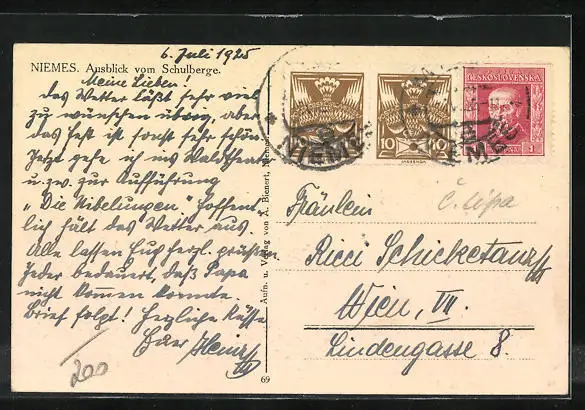 6. Juli 1925
NIEMES. Ausblick vom Schulberge.
Meine Lieben!
das Wetter läßt sehr viel
zu wünschen übrig, aber
das Fest ist sonst sehr schön.
Jetzt gehe ich ins Waldtheater
u. zw. zur Aufführung
"Die Nibelungen" hoffent-
lich hält das Wetter aus.
Alle lassen Euch herzl. grüßen
Jeder bedauert, daß Papa
nicht kommen konnte.
Brief folgt! Herzliche Küsse
Euer
200
Aufn. u. Verlag von A. Bienert,
69
ČESKOSLOVENSKÁ
10
10
1
NIEMES
Č. Lípa
Fräulein
Ricci
Wien, VII.
Lindengasse 8.